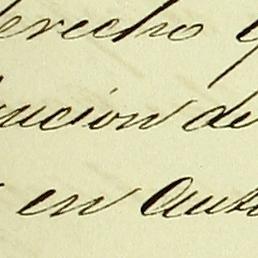 derecho
ucion de
en Auto